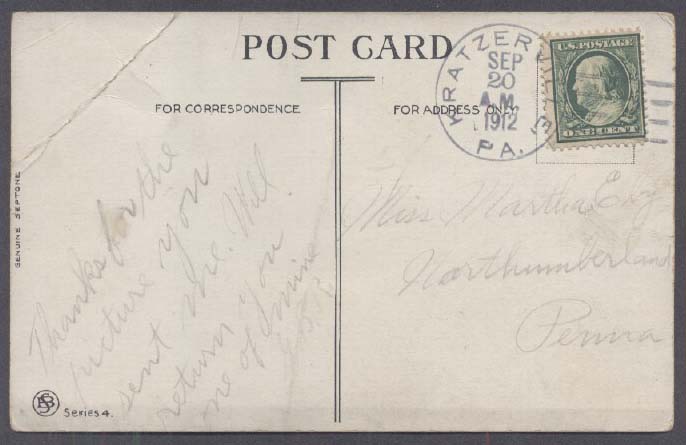 POST CARD
FOR CORRESPONDENCE
FOR ADDRESS ONLY
KRATZER E
SEP
20
A.M.
1912
PA.
U.S. POSTAGE
ONE CENT
GENUINE SEPTONE
Thanks for the
picture you
sent me. Will
return you
one of mine
Miss Martha
Northumberland
Penna
Series 4.